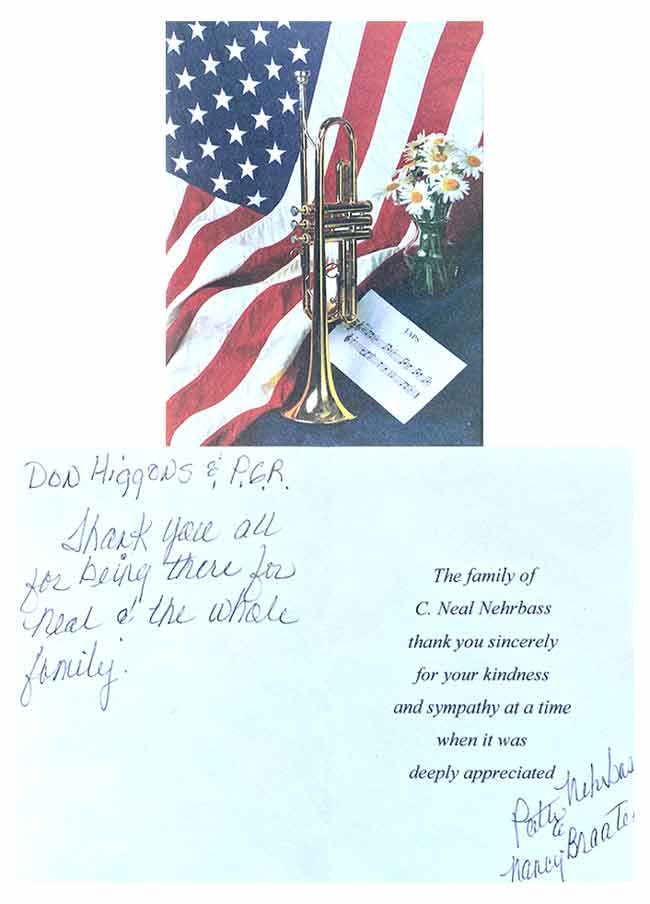 TAPS
Don Higgons & P.G.R.
Thank you all
for being there for
Neal & the whole
family.
The family of
C. Neal Nehrbass
thank you sincerely
for your kindness
and sympathy at a time
when it was
deeply appreciated
Patti Nehrbas
&
Nancy Braate